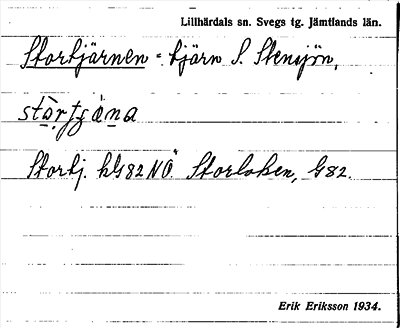 Lillhärdals sn. Svegs tg. Jämtlands län.
Stortjärnen - tjärn S. Stensjön,
Stortj. hG82NO. Storloken, G82.
Erik Eriksson 1934.